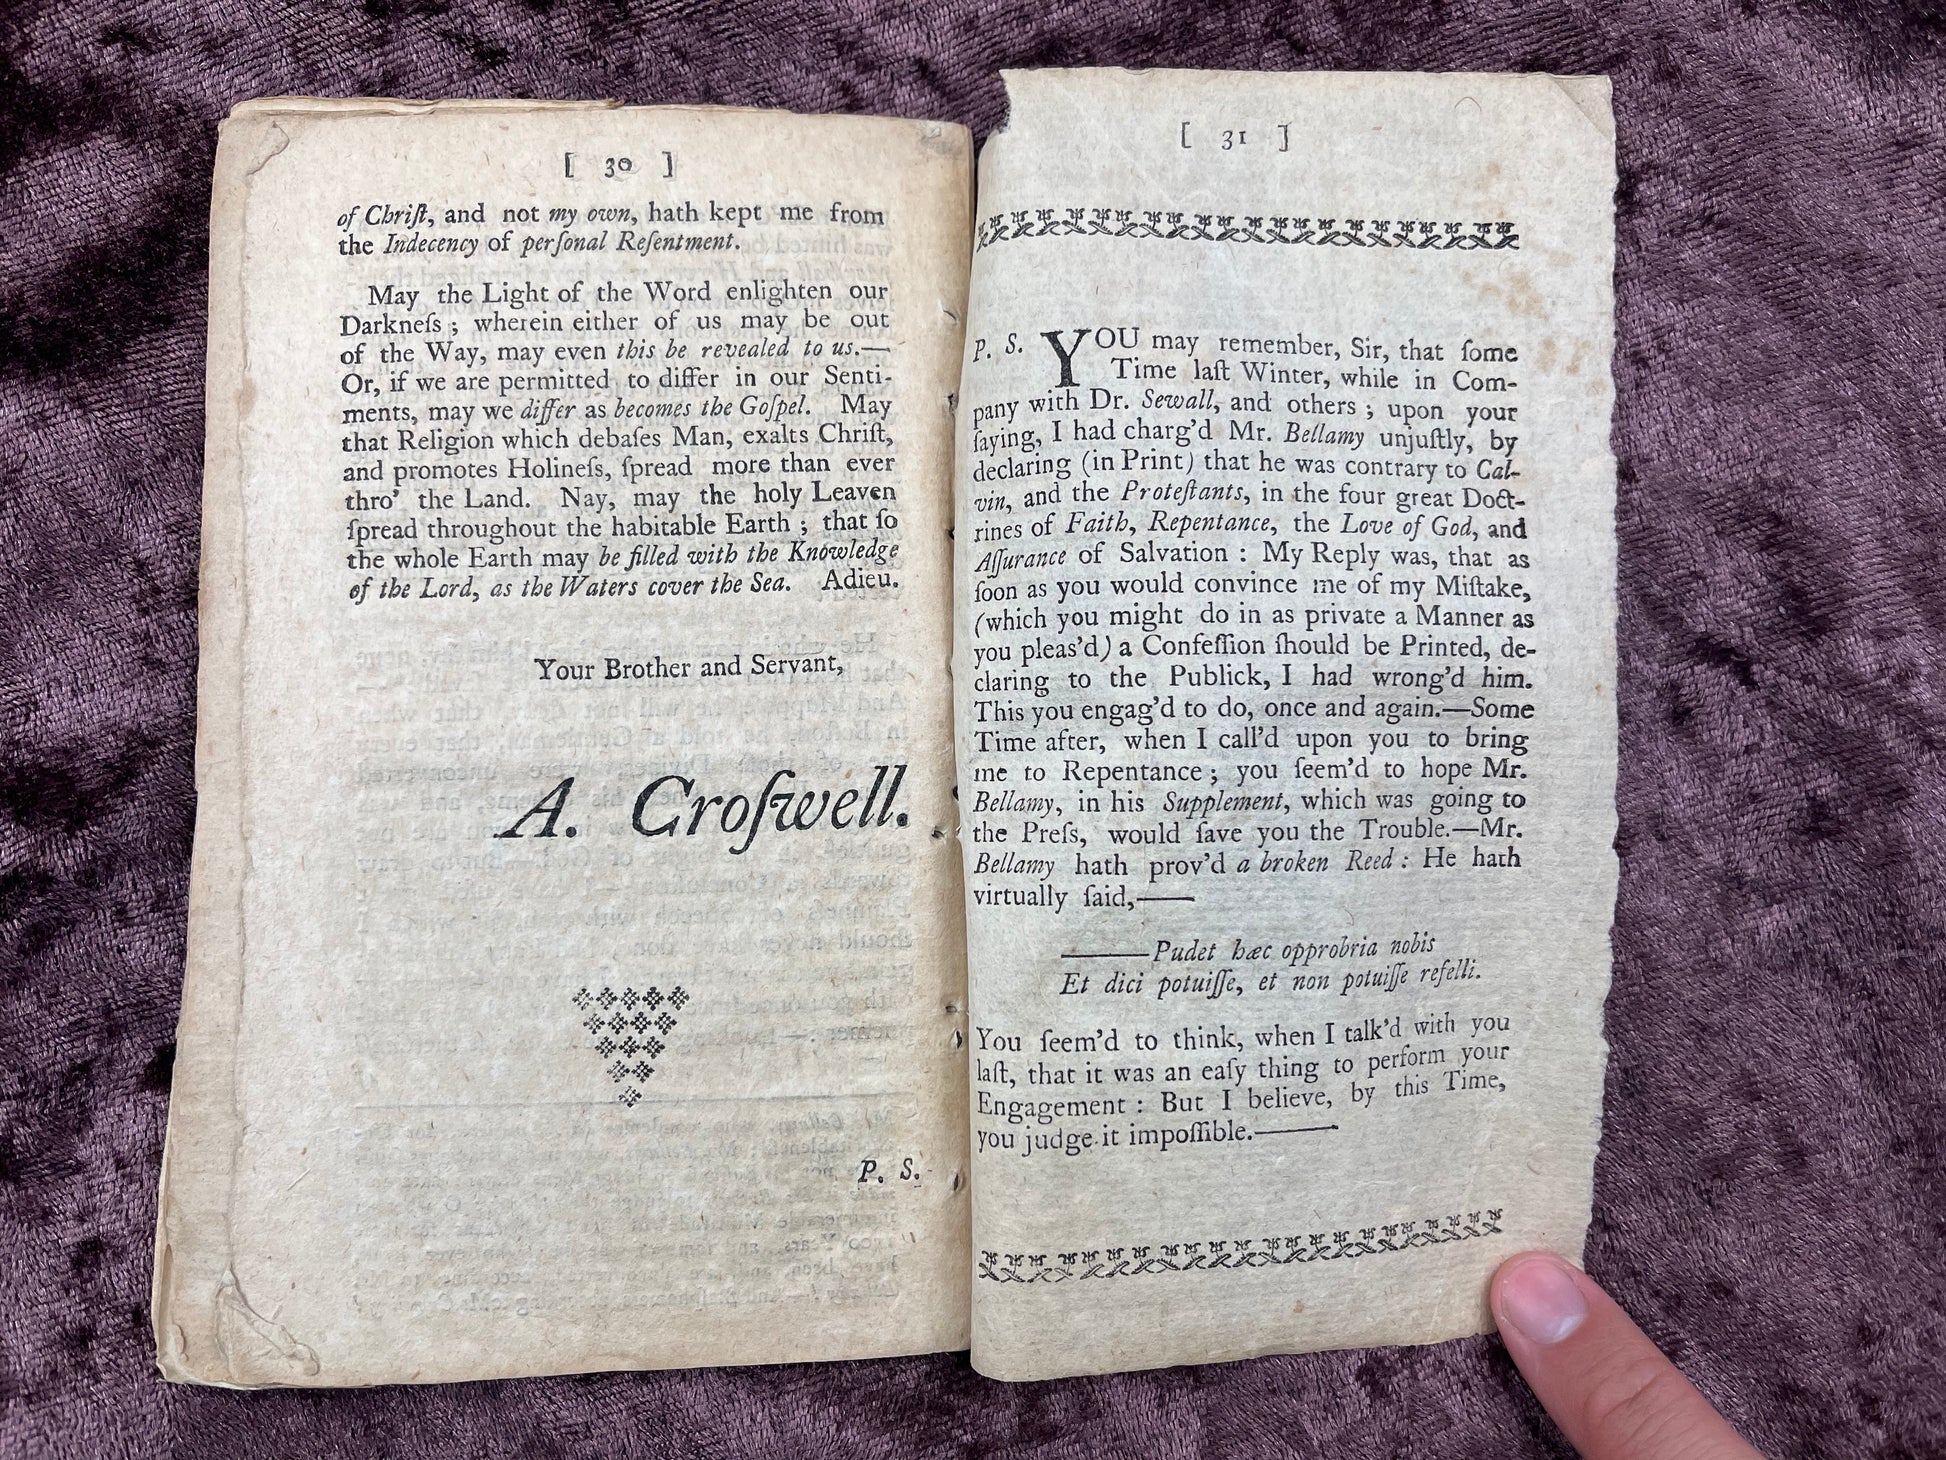 [ 30 ]
of Chriſt, and not my own, hath kept me from
the Indecency of perſonal Reſentment.
May the Light of the Word enlighten our
Darkneſs ; wherein either of us may be out
of the Way, may even this be revealed to us.—
Or, if we are permitted to differ in our Senti-
ments, may we differ as becomes the Goſpel. May
that Religion which debaſes Man, exalts Chriſt,
and promotes Holineſs, ſpread more than ever
thro' the Land. Nay, may the holy Leaven
ſpread throughout the habitable Earth ; that ſo
the whole Earth may be filled with the Knowledge
of the Lord, as the Waters cover the Sea. Adieu.
Your Brother and Servant,
A. Croſwell.
P. S.
[ 31 ]
P. S. YOU may remember, Sir, that ſome
Time laſt Winter, while in Com-
pany with Dr. Sewall, and others ; upon your
ſaying, I had charg'd Mr. Bellamy unjuſtly, by
declaring (in Print) that he was contrary to Cal-
vin, and the Proteſtants, in the four great Doct-
rines of Faith, Repentance, the Love of God, and
Aſſurance of Salvation : My Reply was, that as
ſoon as you would convince me of my Miſtake,
(which you might do in as private a Manner as
you pleas'd) a Confeſſion ſhould be Printed, de-
claring to the Publick, I had wrong'd him.
This you engag'd to do, once and again.—Some
Time after, when I call'd upon you to bring
me to Repentance ; you ſeem'd to hope Mr.
Bellamy, in his Supplement, which was going to
the Preſs, would ſave you the Trouble.—Mr.
Bellamy hath prov'd a broken Reed : He hath
virtually ſaid,——
———Pudet hæc opprobria nobis
Et dici potuiſſe, et non potuiſſe refelli.
You ſeem'd to think, when I talk'd with you
laſt, that it was an eaſy thing to perform your
Engagement : But I believe, by this Time,
you judge it impoſſible.———